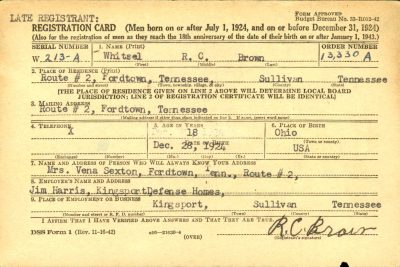 LATE REGISTRANT:
FORM APPROVED
Budget Bureau No. 33-R012-42
REGISTRATION CARD (Men born on or after July 1, 1924, and on or before December 31, 1924)
(Also for the registration of men as they reach the 18th anniversary of the date of their birth on or after January 1, 1943.)
SERIAL NUMBER 1. NAME (Print) ORDER NUMBER
W 213-A Whitsel R. C. Brown 13,330 A
(First) (Middle) (Last)
2. PLACE OF RESIDENCE (Print)
Route # 2, Fordtown, Tennessee, Sullivan Tennessee
(Number and street) (Town, township, village, or city) (County) (State)
[THE PLACE OF RESIDENCE GIVEN ON LINE 2 ABOVE WILL DETERMINE LOCAL BOARD
JURISDICTION; LINE 2 OF REGISTRATION CERTIFICATE WILL BE IDENTICAL]
3. MAILING ADDRESS
Route # 2, Fordtown, Tennessee
[Mailing address if other than place indicated on line 2. If same, insert word same]
4. TELEPHONE 5. AGE IN YEARS 6. PLACE OF BIRTH
X 18 Ohio
DATE OF BIRTH (Town or county)
Dec. 28, 1924 USA
(Exchange) (Number) (Mo.) (Day) (Yr.) (State or country)
7. NAME AND ADDRESS OF PERSON WHO WILL ALWAYS KNOW YOUR ADDRESS
Mrs. Vena Sexton, Fordtown, Tenn., Route # 2,
8. EMPLOYER'S NAME AND ADDRESS
Jim Harris, Kingsport Defense Homes,
9. PLACE OF EMPLOYMENT OR BUSINESS
Kingsport, Sullivan Tennessee
(Number and street or R. F. D. number) (Town) (County) (State)
I AFFIRM THAT I HAVE VERIFIED ABOVE ANSWERS AND THAT THEY ARE TRUE.
DSS Form 1 (Rev. 11-16-42) (OVER) R.C. Brown
(Registrant's signature)